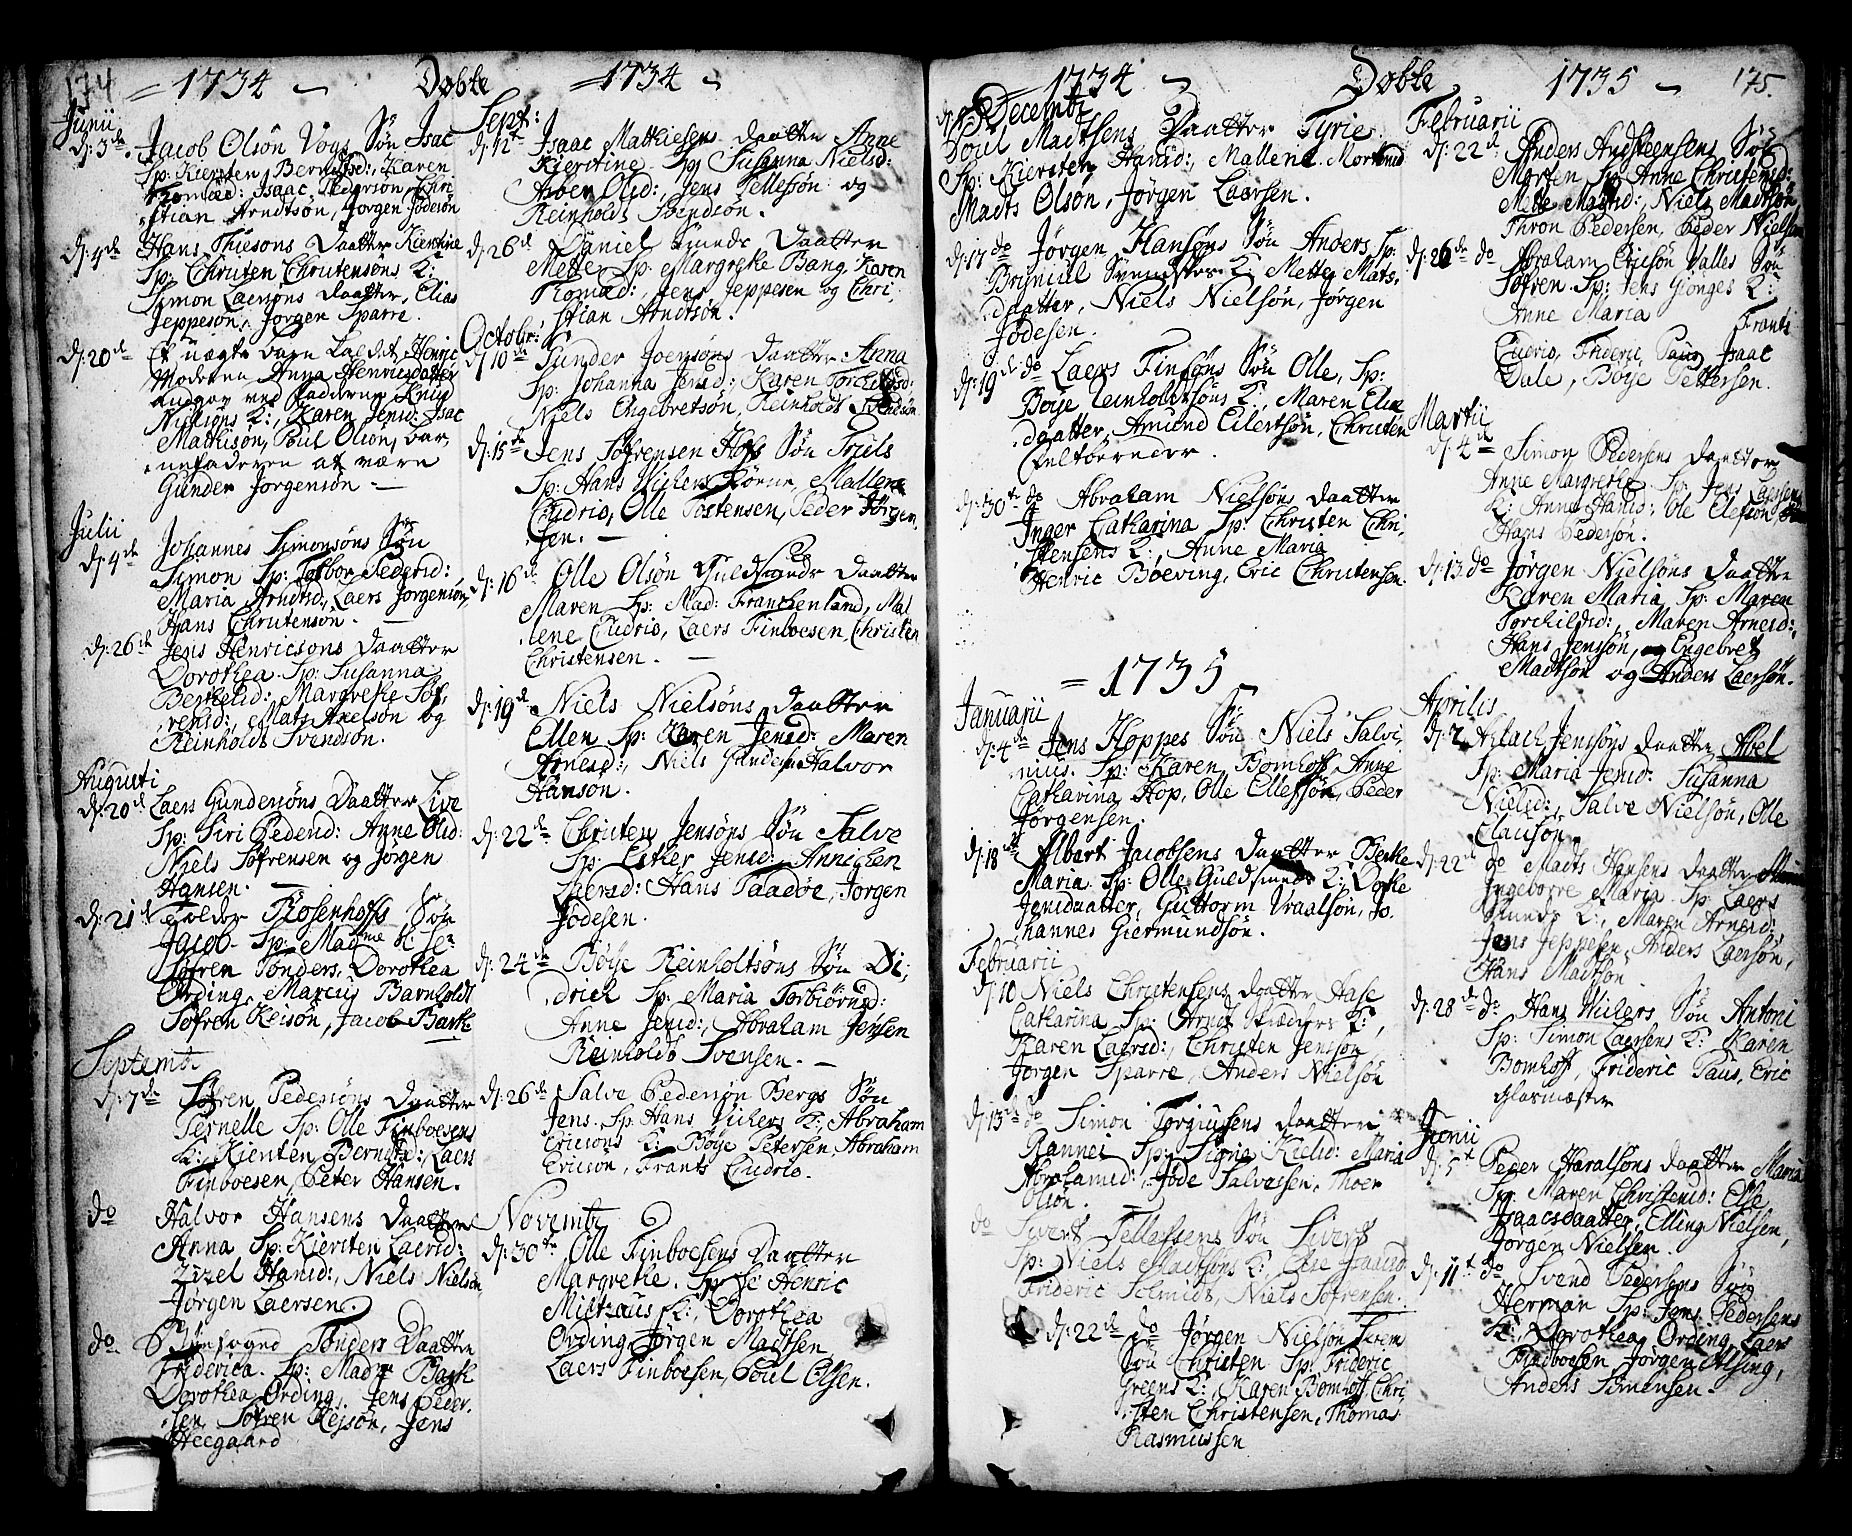 174 = 1734 - Døbte = 1734 -
Junii
d: 3de Jacob Olsøn Vogs Søn Isac
Sp: Kiersten Berntsd:, Karen
Thomæd: Isaac Pedersøn, Chri-
stian Arndtsøn, Jørgen Jødesøn
d: 4de Hans Thiesons Daatter Kirstine
Sp: Christen Christensøns K:
Simon Laersøns Daatter, Elias
Jeppesøn, Jørgen Sparre.
d: 20de Et uægte barn kaldet Henric
Moderen Anna Henricsdatter
udgav ved Faderen Knud
Nielsøns K:, Karen Jensd: Isac
Mathisøn, Poul Olsøn, bar-
nefaderen at være
Gunder Jørgensøn -
Julii
d: 4de Johannes Simonsøns Søn
Simon Sp: Tobbor Pedersd:
Maria Arndtsd, Laers Jørgensøn,
Hans Christensøn. -
d: 26de Jens Henricsøns Daatter
Dorothea Sp: Susanna
Berthelsd: Margrethe Søf-
rensd:, Mats Axelsøn og
Reinholdt Svendsøn.
Augusti
d: 20de Laers Gundersøns Daatter Live
Sp: Siri Pedersd: Anne Olsd:
Niels Søfrensen og Jørgen
Hansen. -
d: 21de Tolder Rosenhoffs Søn
Jacob Sp: Madme K: Sr
Søfren Tønders, Dorothea
Ording, Marcus Barnholdt
Søfren Kejsøn, Jacob Bark
Septembr
d: 7de Søfren Pedersøns Daatter
Pernelle Sp: Olle Finboesens
K:, Kiersten Berntsd:, Laers
Finboesen, Peter Hansen.
do Halvor Hansens Daatter
Anna Sp: Kiersten Laersd:
Zizel Hansd:, Niels Nielsøn
Jørgen Laersen.
do Tønders Daatter
Friderica. Sp: Madme Bark
Dorothea Ording, Jens Peder-
sen, Søfren Kejsøn, Jens
Heegaard
Sept:
d: 12t Isaac Mathiesens Daatter Anne
Kierstine Sp Susanna Nielsd:
Olsd:, Jens Tellefsøn og
Reinholdt Svendsøn.
d: 26d Daniel Smeds Daatter
Mette Sp: Margrethe Bang, Karen
Thomæd:, Jens Jeppesen og Chri-
stian Arndtsøn.
Octobr:
d: 10de Gunder Joensøns Daatter Anna
Sp: Johanna Jensd: Karen Torchildsd:
Niels Engebretsøn, Reinholdt Svendsøn
d: 15de Jens Søfrensen Hofs Søn Troels
Sp: Hans Wichers Kone, Mallene
Cudrio, Olle Tostensen, Peder Jørgen-
sen. -
d: 16d Olle Olsøn Guldsmeds Daatter
Maren Sp: Mad: Franchenland, Mal-
lene Cudrio, Laers Finboesen, Christen
Christensen. -
d: 19de Niels Nielsøns Daatter
Ellen Sp: Karen Jensd: Maren
Arnesd:, Niels Gundersen Halvor
Hansøn.
d: 22de Christen Jensøns Søn Salve
Sp: Esther Jensd: Annichen
Laersd: Hans Taadøe, Jørgen
Jødesen.
d: 24de Bøye Reinholtsøns Søn Di-
drich Sp: Maria Torbiørnsd:
Anne Jensd:, Abraham Jensen
Reinholdt Svensen. -
d: 26de Salve Pedersøn Bergs Søn
Jens. Sp: Hans Vichers K:, Abraham
Ericsøns K: Bøye Petersen, Abraham
Ericsøn, Frants Cudrio.
Novembr
d: 30te Olle Finboesens Daatter
Margrethe. Sp: Sr Henric
Miltzous K:, Dorothea
Ording, Jørgen Madtsen
Laers Finboesen, Poul Olsen.
= 1734 - Døbte 1735 - 175.
Decembr
Poul Madtsens Daatter Tyrie
Sp: Kiersten Hansd:, Mallene Mortensd
Madts Olsøn, Jørgen Laersen.
d: 17de do Jørgen Hansøns Søn Anders Sp:
K: Mette Mats-
daatter, Niels Nielsøn, Jørgen
Jødesen.
d: 19de do Laers Finsøns Søn Olle, Sp:
Boye Reinholdtsøns K:, Maren Elie
daatter, Amund Eilertsøn, Christen
Feltbereder.
d: 30te do Abraham Nielsøns Daatter
Inger Catharina Sp: Christen Chri-
stensens K:, Anne Maria
Henric Bøeving, Eric Christensen.
= 1735 -
Januarii
d: 4de Jens Hoppes Søn Niels Salvi-
nius. Sp: Karen Bomhoff, Anne
Catharina Hop, Olle Ellefsøn, Peder
Jørgensen.
d: 18de Albert Jacobsens Daatter Berthe
Maria. Sp: Olle Guldsmeds K: Dorthe
Jensdaatter, Guttorm Vraalsøn, Jo-
hannes Giermundsøn.
Februarii
d: 10 Niels Christensens Daatter Hase
Catharina Sp: Arndt Skredders K:,
Karen Laersd:, Christen Jensøn
Jørgen Sparre, Anders Nielsøn
d: 13de do Simon Torgiusens Daatter
Rannei Sp: Signa Kield: Maria
Abrahamsd:, Jøde Salvesen, Thoer
Olsøn.
do Sivert Tellefsens Søn Sivert
Sp: Niels Madtsøns K:
Frideric Schmidt, Niels Søfrensen.
d: 22de do Jørgen Nielsøn
Søn Christen Sp: Frideric
Greens K:, Karen Bomhoff, Chri-
sten Christensen, Thomas
Rasmussen
Februarii
d: 22de Anders Andersens Søn
Morten Sp Anne Christensd:
Mette Madtsd:, Niels Madtsøn
Thron Pedersen, Peder Nielsen
d: 26de do Abraham Ericsøn Valles Søn
Søfren. Sp: Jens Giønges K:
Anne Maria Frants
Cudrio, Frideric Paus, Isaac
Dale, Boye Pettersen.
Martii
d: 4de Simon Pedersens Daatter
Anne Margrethe Sp: Jens Laersens
K: Anne Hansd: Ole Elefsøn
Hans Pedersøn.
d: 13 do Jørgen Nielsøns Daatter
Karen Maria, Sp: Maren
Torchildsd:, Maren Arnesd:,
Hans Jenssøn, og Engebret
Madtsøn og Anders Laersøn.
Aprilis
d: 2 Aslach Jenssøns Daatter Abel
Sp: Maria Jensd: Susanna
Nielsd:, Salve Nielsøn, Olle
Clausøn
d: 22de do Madts Hansens Daatter
Ingeborre Maria Sp: Laers
Smeds K:, Maren Arnesd:
Jens Jeppesen, Anders Laersøn,
Hans Madtsøn
d: 28de do: Hans Wichers Søn Antoni
Sp: Simon Laersens K: Karen
Bomhoff, Frideric Paus, Eric
Glarmæster
Junii
d: 5t Peder Haralsøns Daatter Maria
Sp: Maren Christensd: Else
Isaacsdaatter, Elling Nielsen,
Jørgen Nielsen.
d: 11te do Svend Pedersøns Søn
Herman Sp: Jens Pedersens
K:, Dorothea Ording, Laers
Findboesen, Jørgen Alsing,
Anders Simensen.